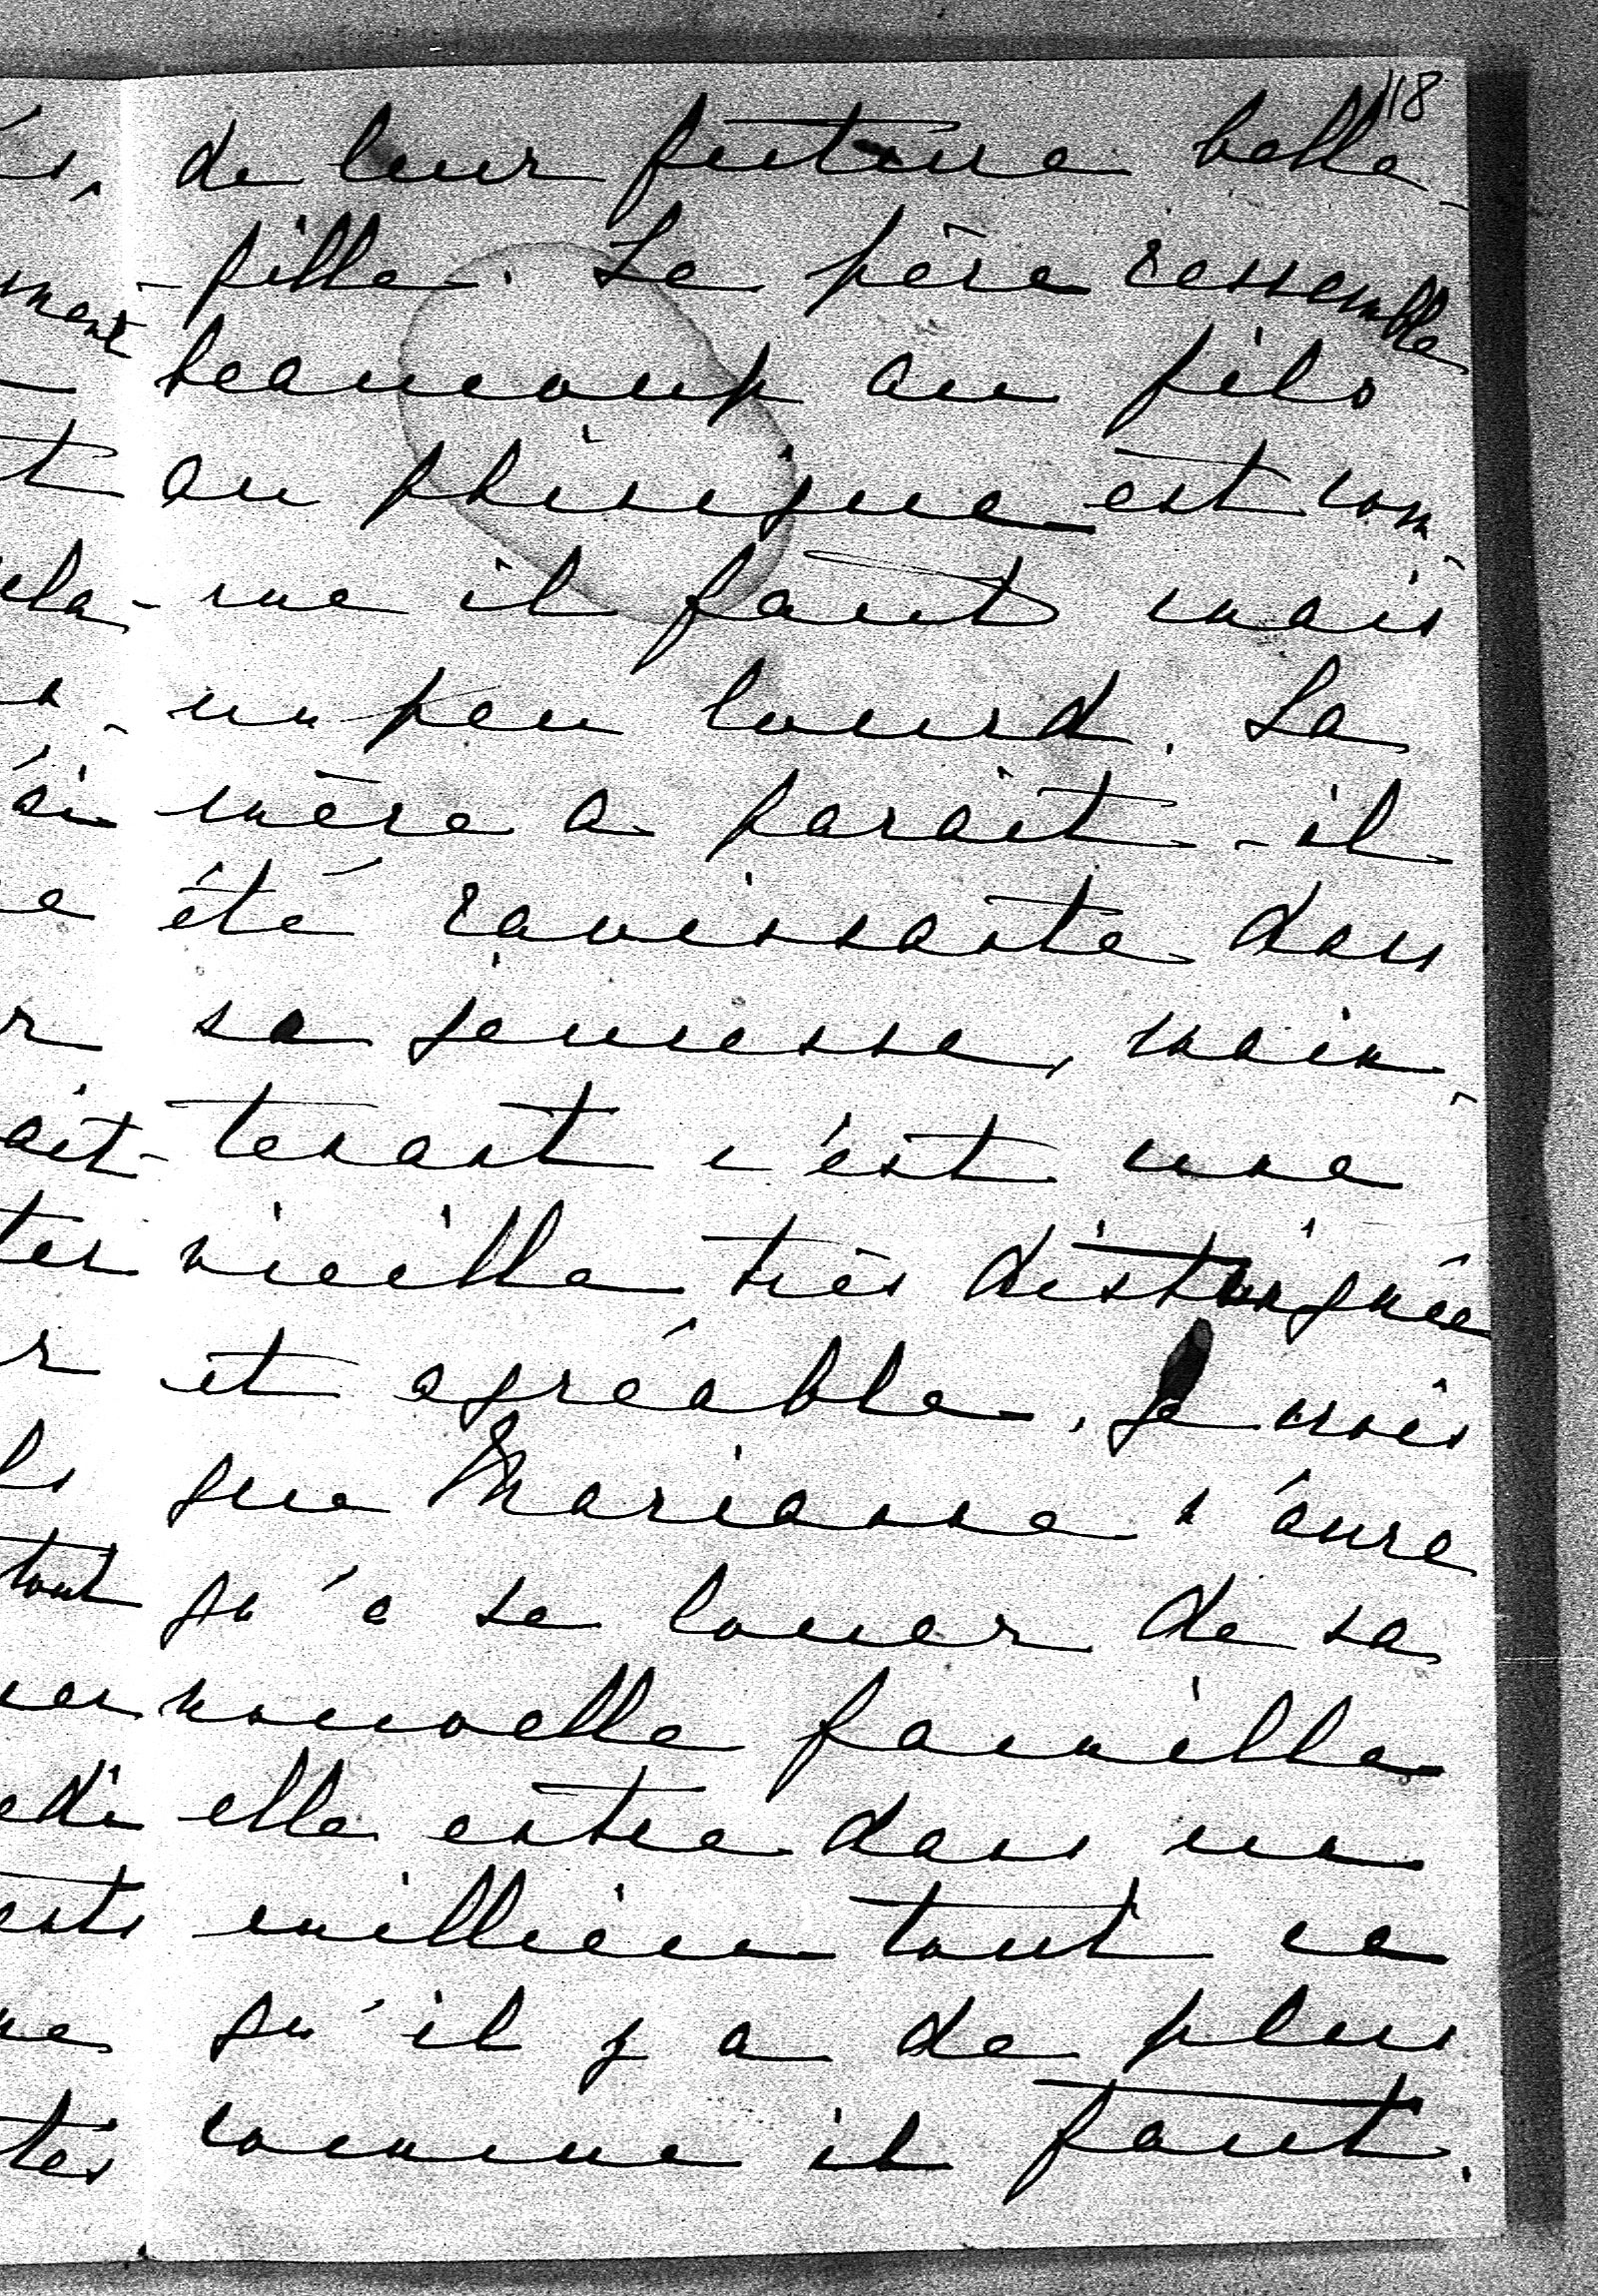 118
de leur future belle-
fille. Le père ressemble
beaucoup au fils
au phisique est com-
me il faut mais
un peu lourd. La
mère a parait-il
été ravissante dans
sa jeunesse, main-
tenant c'est une
vieille très distinguée
et agréable. Je crois
que Marianne n'aura
qu'à se louer de sa
nouvelle famille
elle entre dans un
millieu tout ce
qu'il y a de plus
comme il faut.